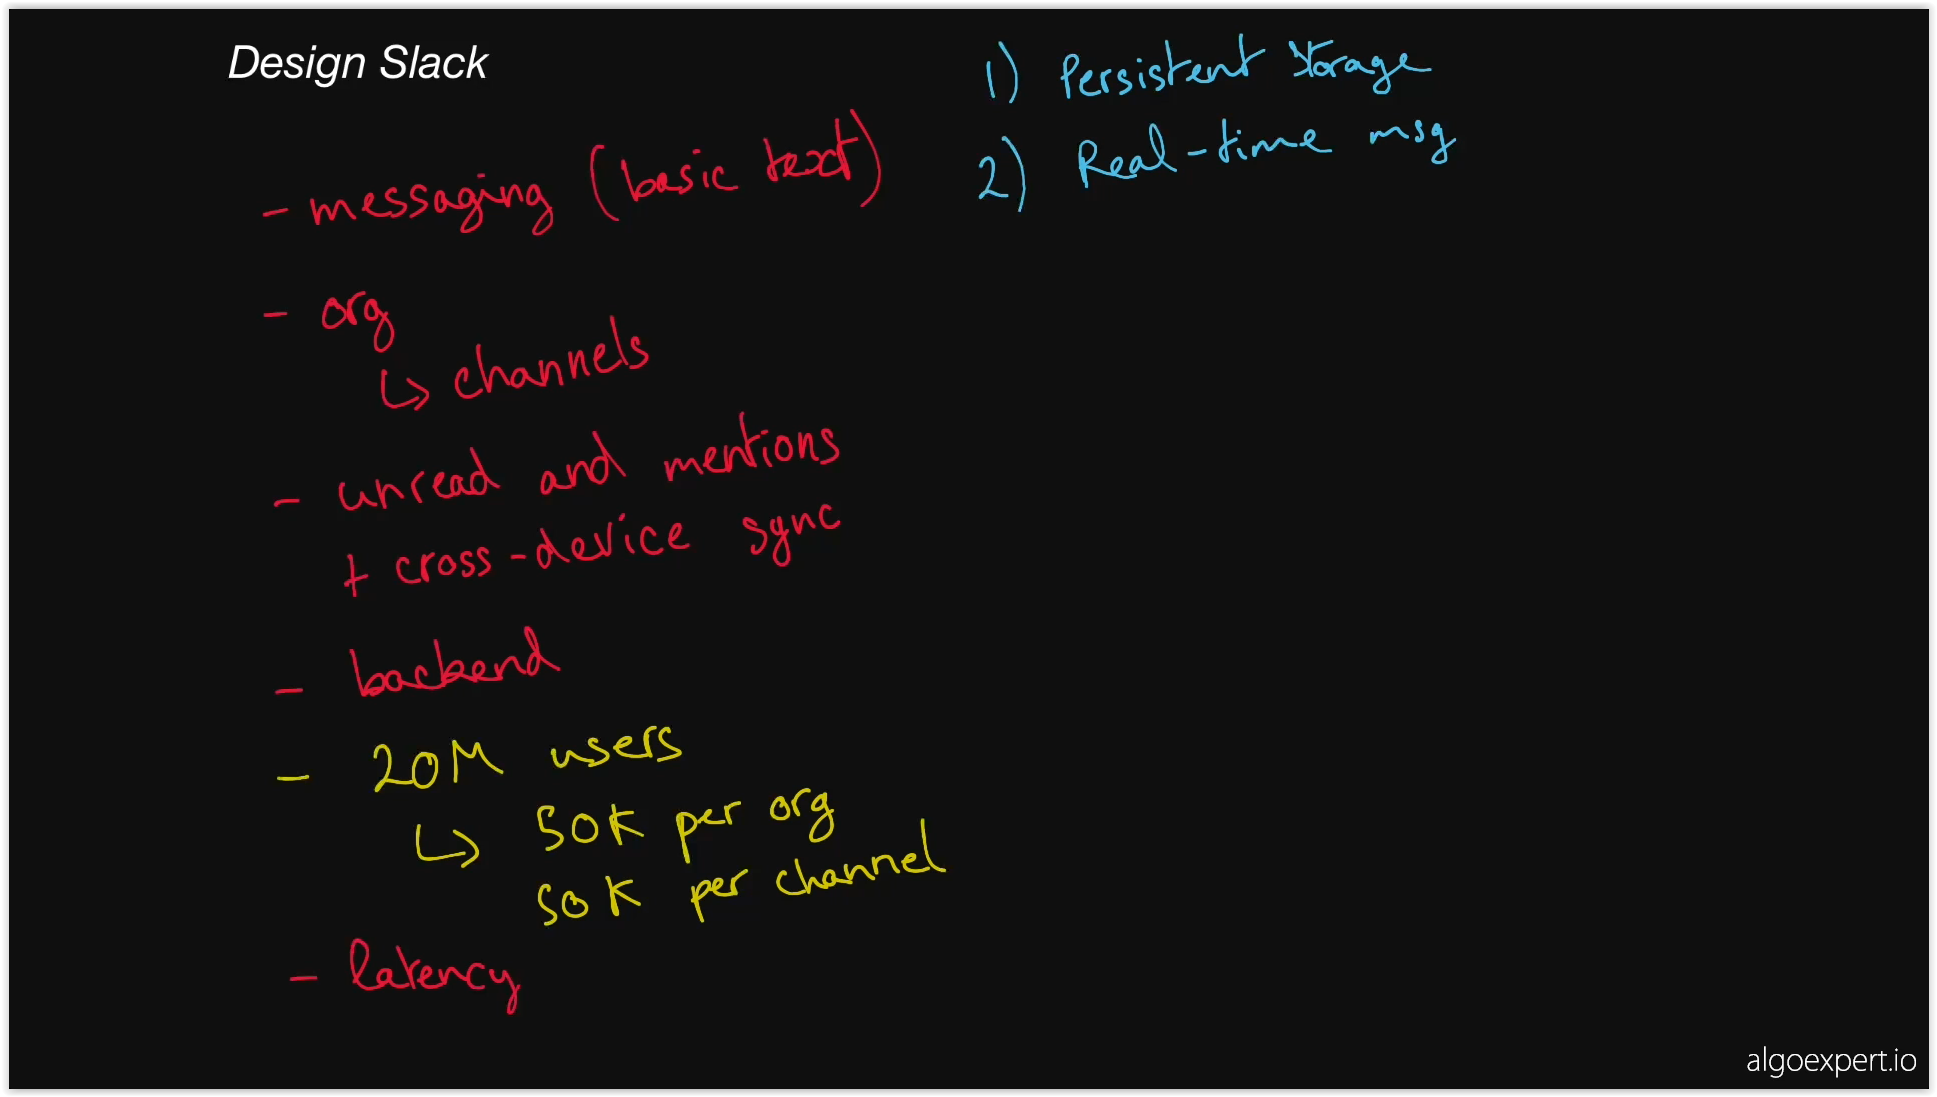 Design Slack
- messaging (basic text)
- org
↳ channels
- unread and mentions
+ cross-device sync
- backend
- 20M users
↳ 50K per org
50K per channel
- latency
1) Persistent Storage
2) Real-time msg
algoexpert.io